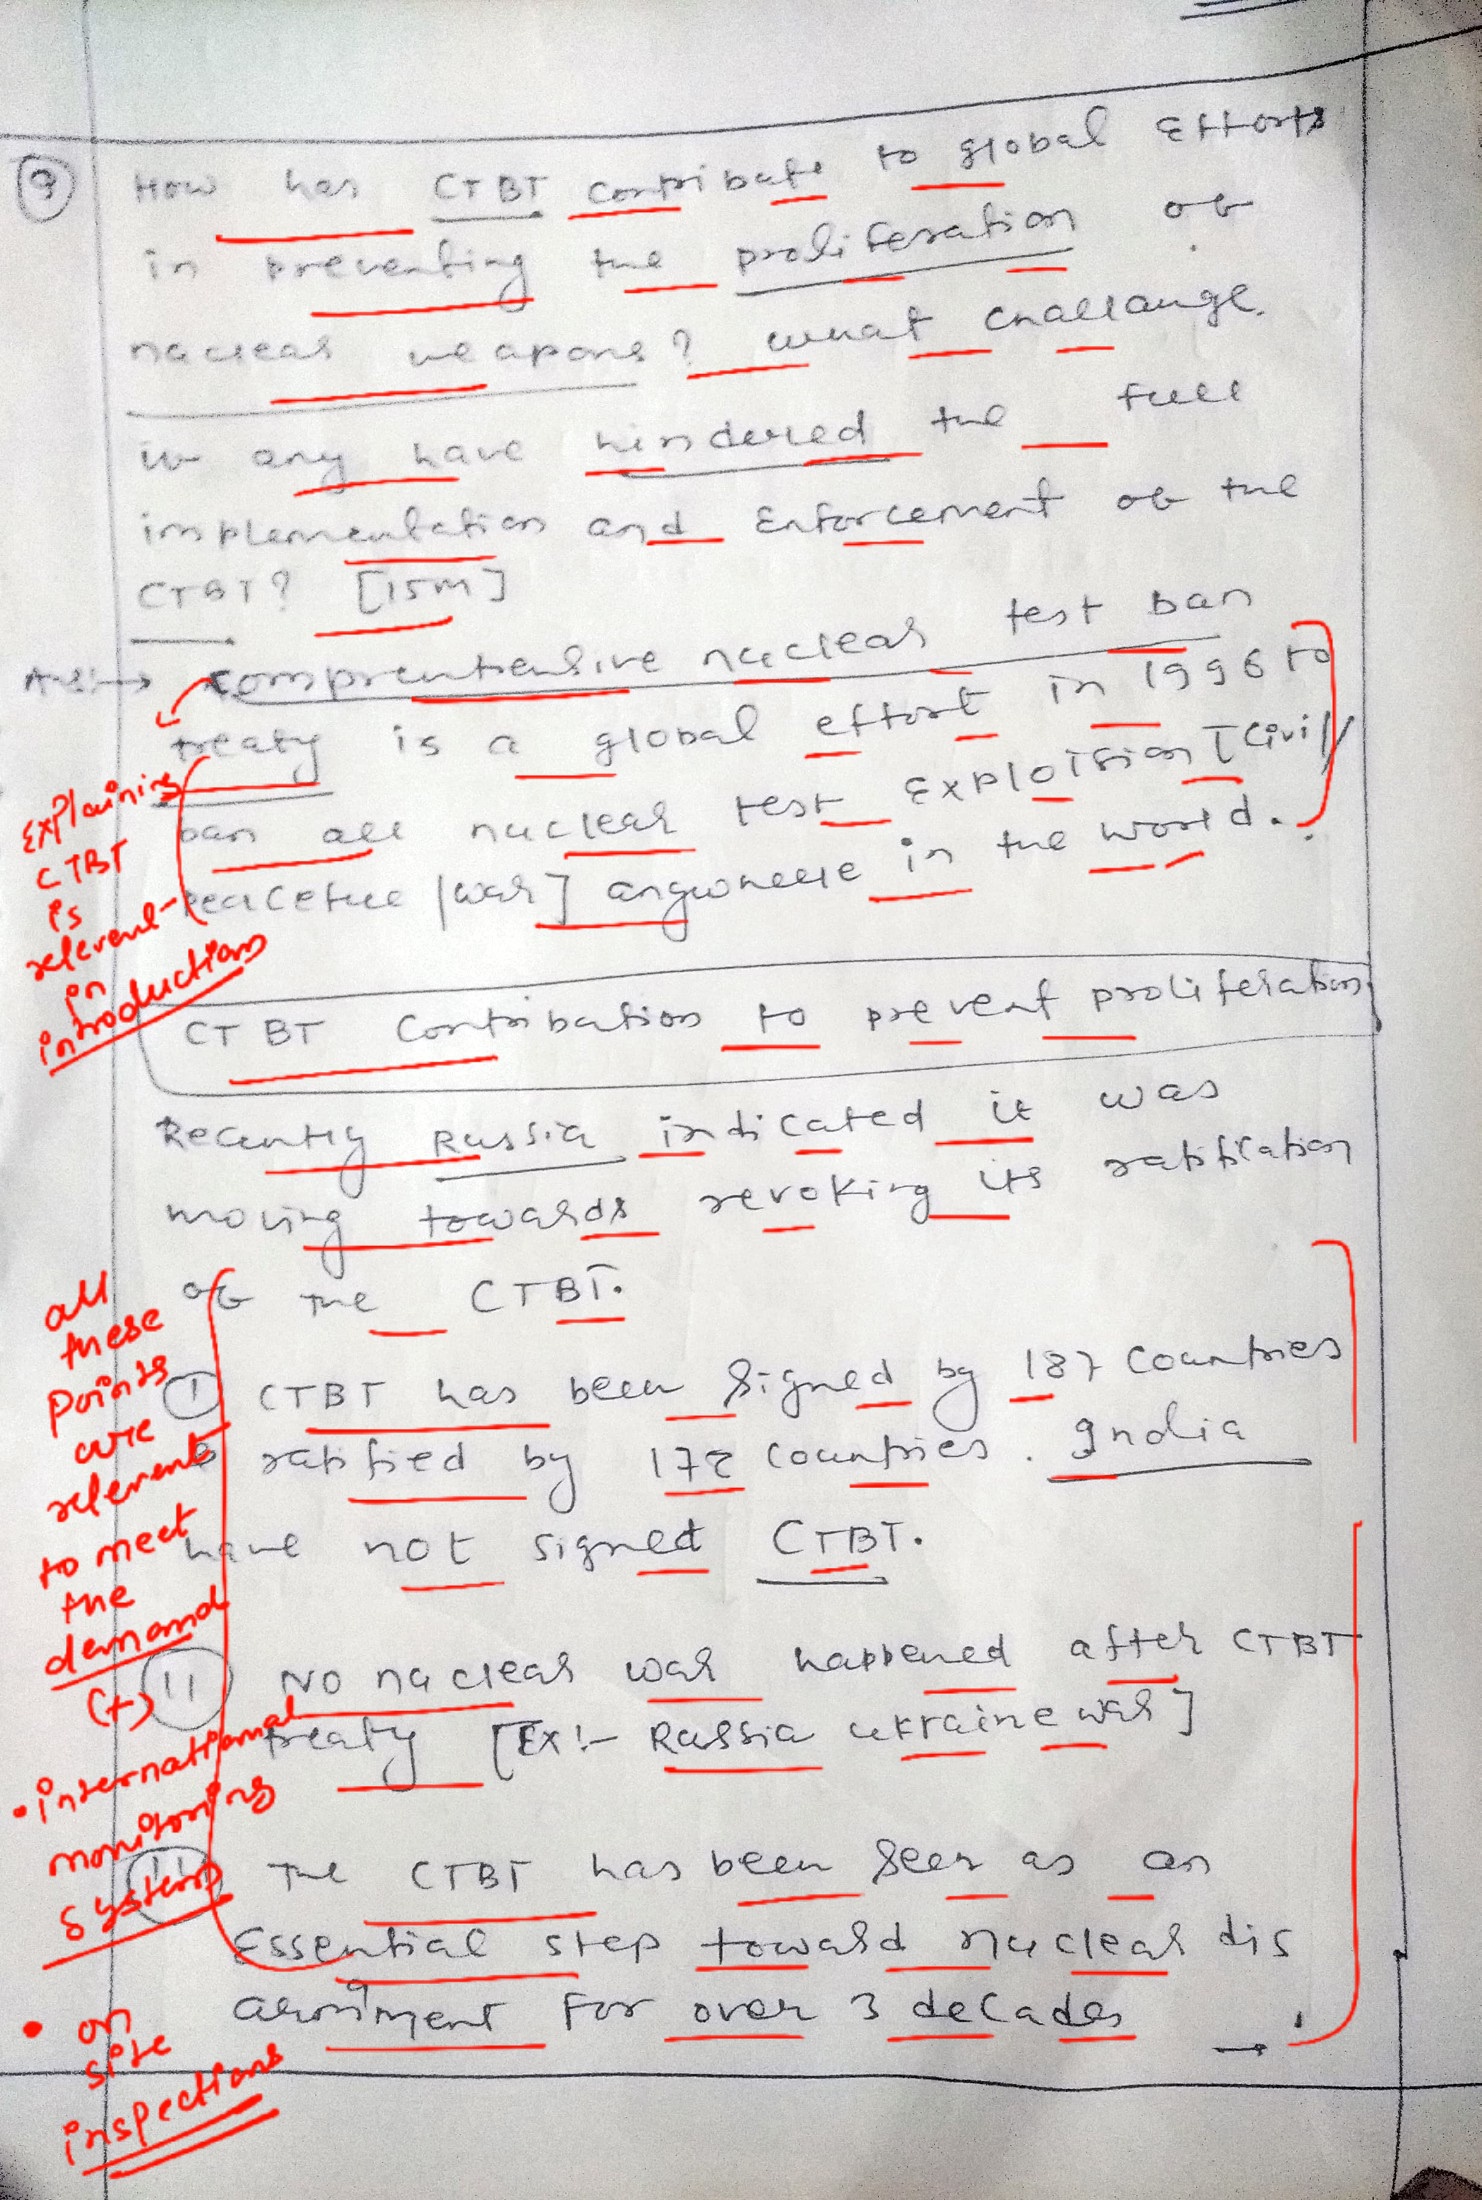 9 How has CTBT contribute to global Efforts
in preventing the proliferation of
nuclear weapons? what challange
if any have hindered the full
implementation and Enforcement of the
CTBT? [15m]
Ans:→ comprenhensive nuclear test ban
treaty is a global effort in 1996 to
ban all nuclear test Exploision [Civil/
peaceful/war] anywhere in the world.
Explaining
CTBT
is
relevent
in
introduction
CTBT Contribution to prevent proliferation
Recently Russia indicated it was
moving towards revoking its ratification
of the CTBT.
I CTBT has been Signed by 187 Countries
& ratified by 178 Countries. India
have not signed CTBT.
II No nuclear war happened after CTBT
treaty [Ex:- Russia ukraine war]
III The CTBT has been Seen as an
Essential step toward nuclear dis
armment for over 3 decades
all
these
points
are
relevent
to meet
the
demand
(+)
• international
monitoring
system
• on
site
inspections